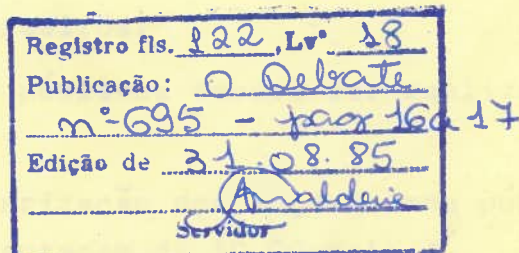 Registro fls. 122, Lvº 18
Publicação: O Debate
nº-695 - pag 16 a 17
Edição de 31.08.85
Servidor